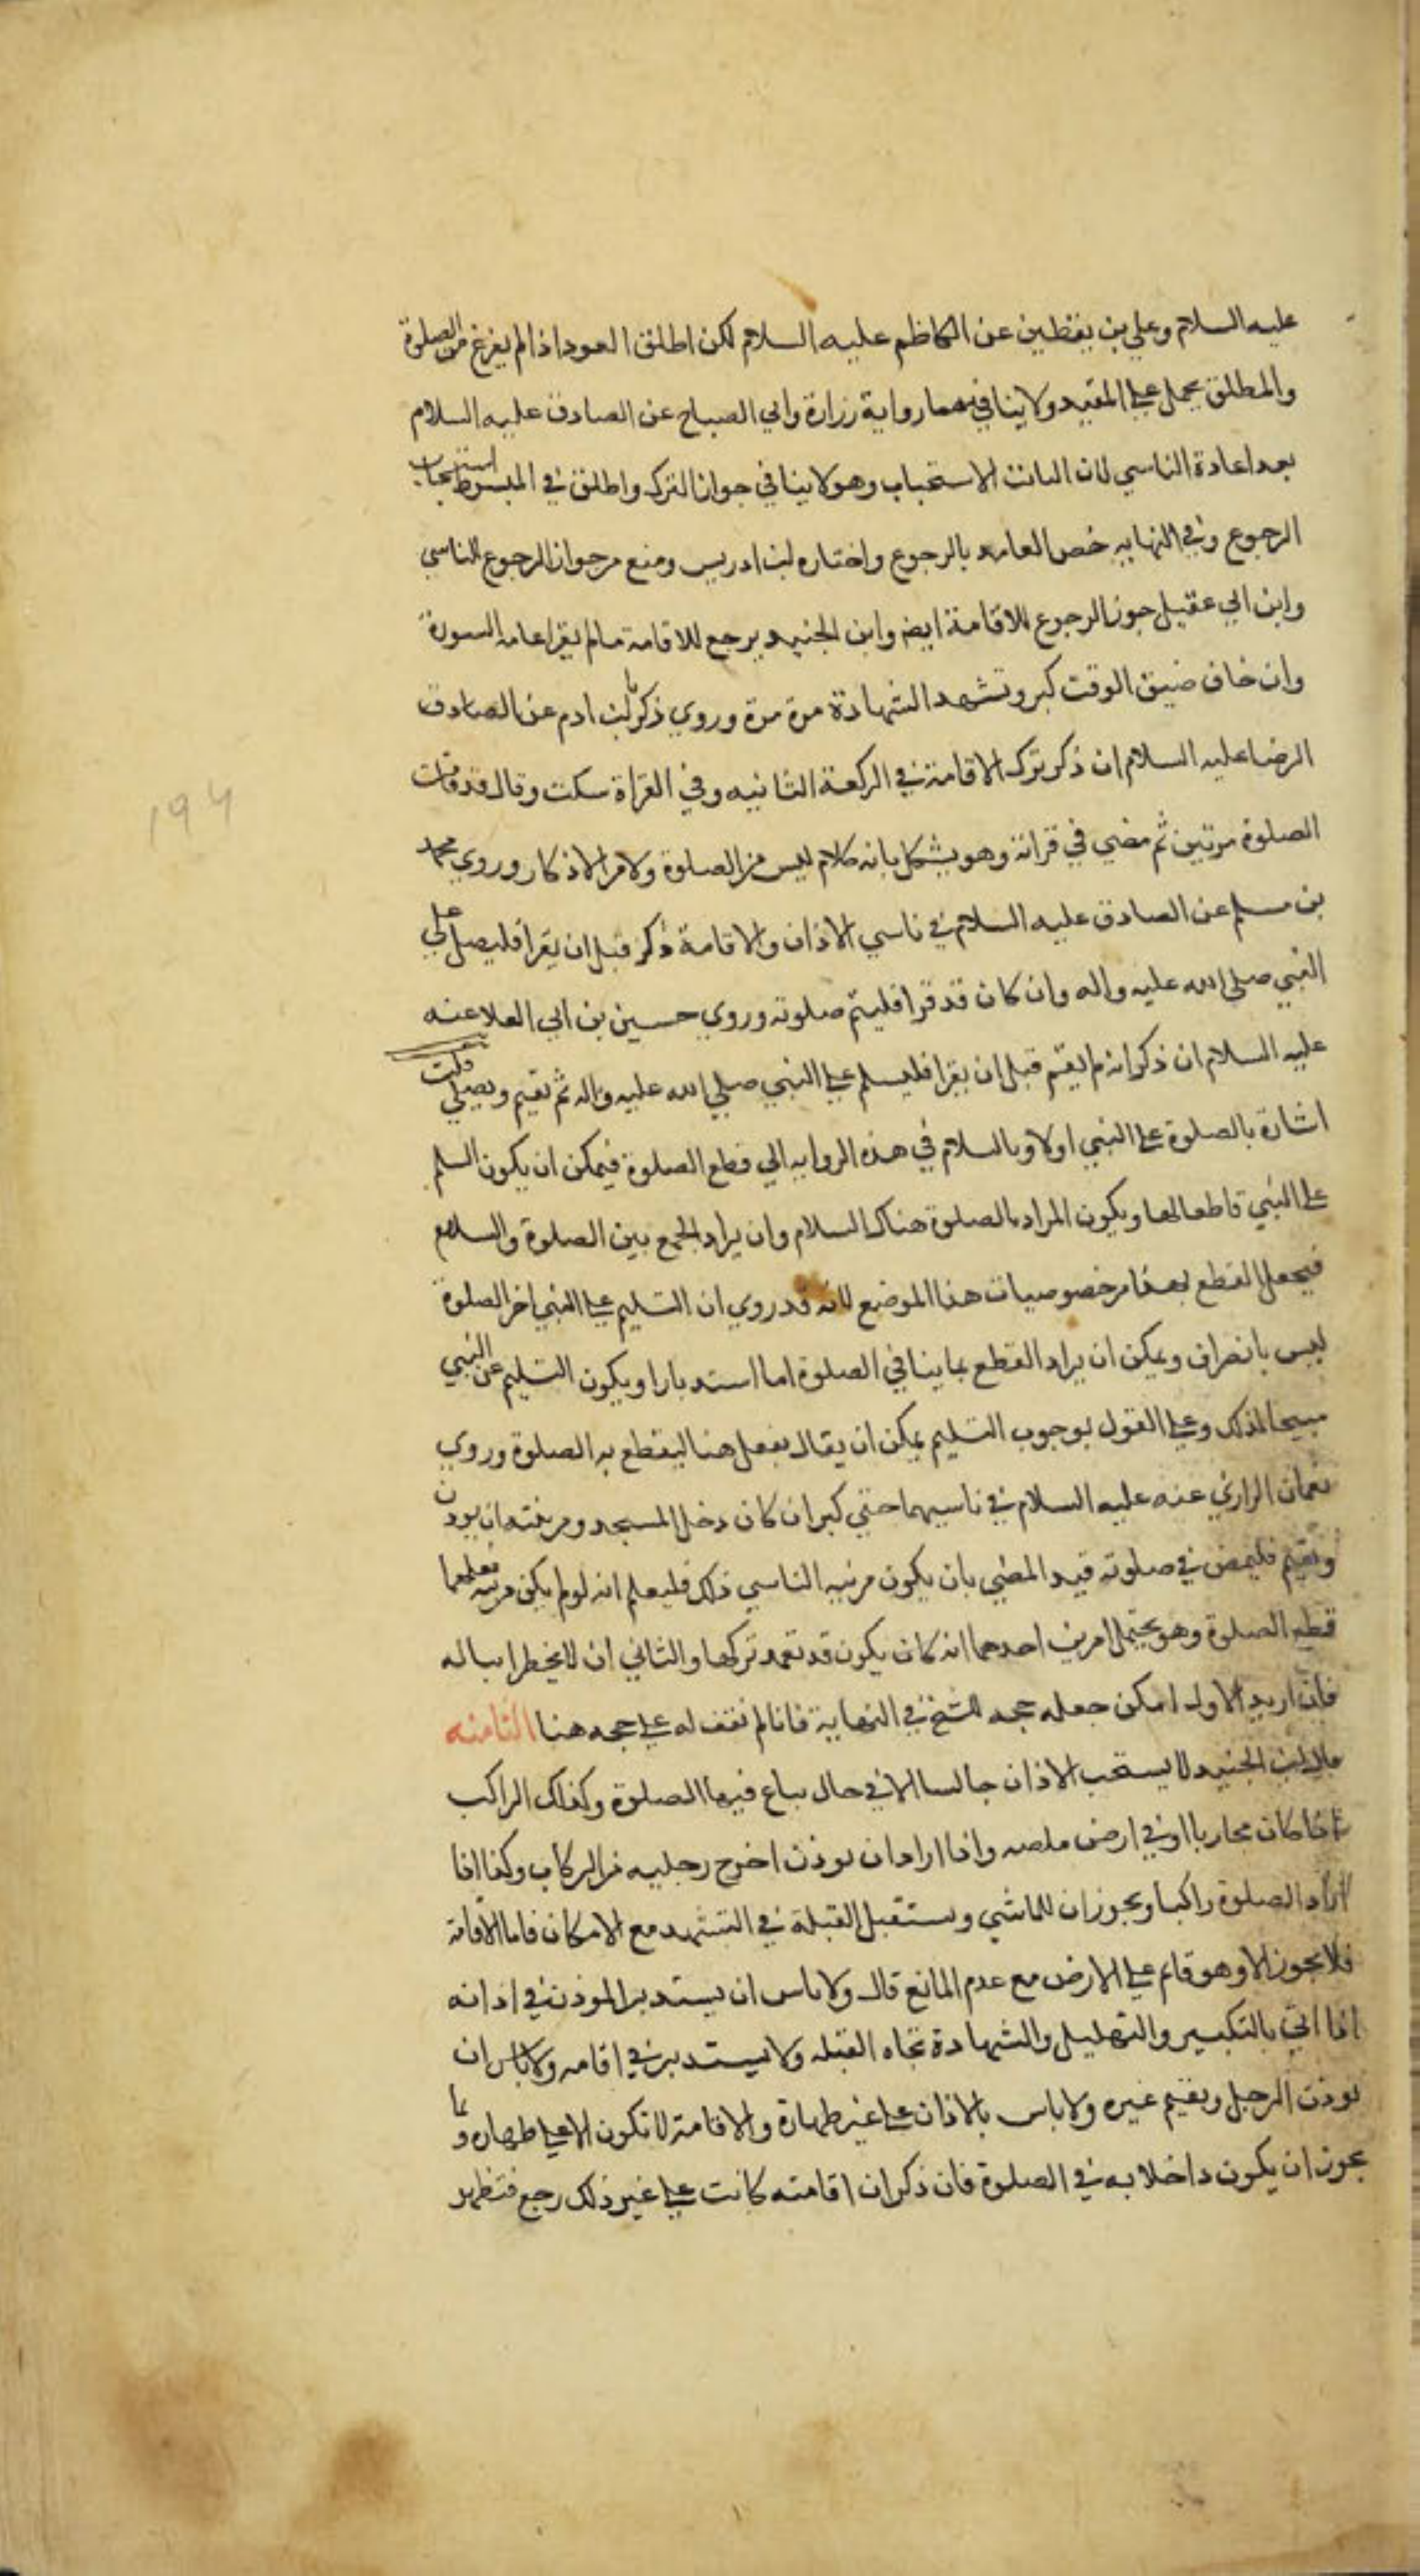 عليه السلام وعلي بن يقطين عن الكاظم عليه السلام لكن اطلق العود اذا لم يفرغ من الصلوة
والمطلق يحمل على المقيد ولا ينافيهما رواية زرارة وابي الصباح عن الصادق عليه السلام
بعد اعادة الناسي لان الاستحباب وهو لا ينافي جواز الترك واطلق في المبسوط استحباب
الرجوع وفي النهايه خص العامد بالرجوع واختاره ابن ادريس ومنع من جواز الرجوع للناسي
وابن ابي عقيل جوز الرجوع للاقامة ايضا وابن الجنيد يرجع للاقامة ما لم يقرا عامه السورة
وان خاف ضيق الوقت كبر وتشهد الشهادة مرة مرة وروي زكريا بن ادم عن الصادق
الرضا عليه السلام ان ذكر ترك الاقامة في الركعة الثانيه وفي القراة سكت وقال قد قامت
الصلوة مرتين ثم مضي في قراته وهو يشكل بانه كلام ليس من الصلوة ولا من الاذكار وروي محمد
بن مسلم عن الصادق عليه السلام في ناسي الاذان والاقامة ذكر قبل ان يقرا فليصل على
النبي صلي الله عليه واله وان كان قد قرا فليتم صلوته وروي حسين بن ابي العلا عنه
عليه السلام ان ذكر انه لم يقم قبل ان يقرا فليسلم على النبي صلي الله عليه واله ثم يقيم ويصلي قلت
اشارة بالصلوة على النبي اولا وبالسلام في هذه الروايه الي قطع الصلوة فيمكن ان يكون السلم
على النبي قاطعا لها ويكون المراد بالصلوة هناك السلام وان يراد الجمع بين الصلوة والسلام
فيجعل القطع بهذا من خصوصيات هذا الموضع لانه قد روي ان التسليم على النبي اخر الصلوة
ليس بانصراف ويمكن ان يراد القطع بما ينافي الصلوة اما استدبارا ويكون التسليم عن النبي
مبيحا لذلك وعلى القول بوجوب التسليم يمكن ان يقال يفعل هنا ليقطع به الصلوة وروي
نعمان الرازي عنه عليه السلام في ناسيهما حتي كبر ان كان دخل المسجد ومن نيته ان يوذن
ويقيم فليمض في صلوته قيد المضي بان يكون من نيه الناسي ذلك فليعلم انه لو لم يكن من نيته فعلهما
قطع الصلوة وهو يحتمل امرين احدهما انه كان يكون قد تعمد تركها والثاني ان لا يخطرا بباله
فان اريد الاول امكن جعله حجه للشيخ في النهاية فانا لم نقف له على حجه هنا الثامنه
قال ابن الجنيد لا يستحب الاذان جالسا الا في حال يباح فيها الصلوة وكذلك الراكب
اذا كان محاربا او في ارض ملصه واذا اراد ان يوذن اخرج رجليه من الركاب وكذا اذا
اراد الصلوة راكبا ويجوز ان للماشي ويستقبل القبلة في التشهد مع الامكان فاما الاقامة
فلا يجوز الا وهو قائم على الارض مع عدم المانع قال ولا باس ان يستدبر الموذن في اذانه
اذا اتي بالتكبير والتهليل والشهادة تجاه القبله ولا يستدبر في اقامه ولا باس ان
يوذن الرجل ويقيم غيره ولا باس بالاذان على غير طهارة والاقامة لا تكون الا على طهاره وبما
يجوز ان يكون داخلا به في الصلوة فان ذكر ان اقامته كانت على غير ذلك رجع فتطهر
١٩٤